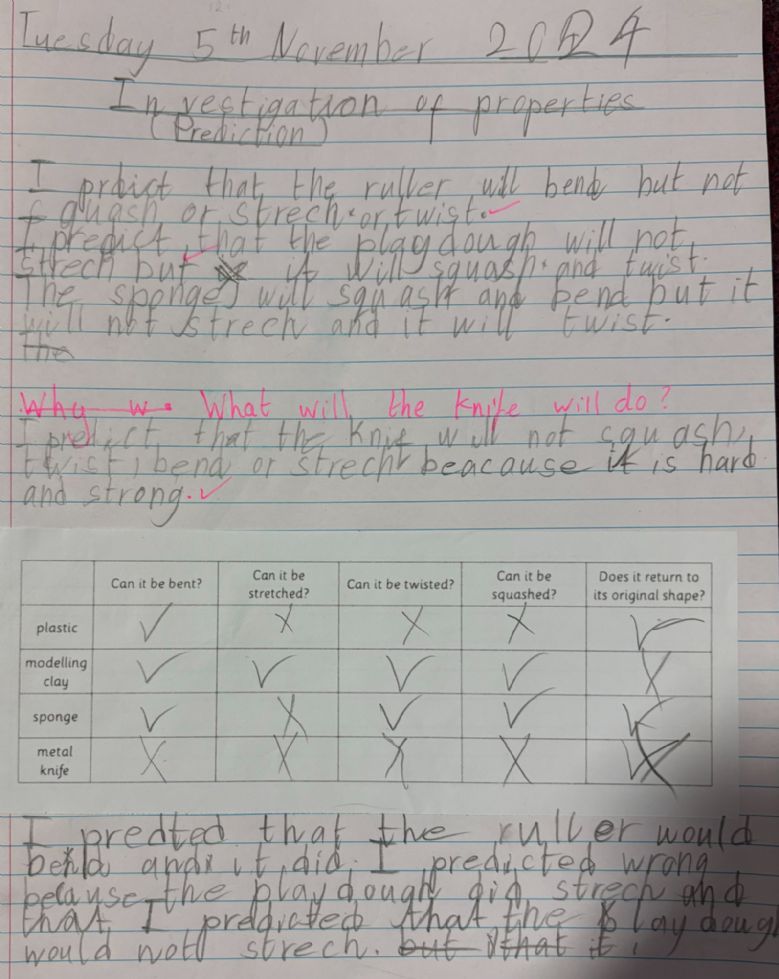 Tuesday 5th November 2024
Investigation of properties
(Prediction)
I prdict that the ruller will bend but not
squash or strech. or twist.
I predict that the playdough will not
strech but it will squash. and twist.
The sponge will squash and bend but it
will not strech and it will twist.
the
Why w. What will the knife will do?
I predict that the knif will not squash,
twist, bend or strecht beacause it is hard
and strong.
Can it be bent? Can it be stretched? Can it be twisted? Can it be squashed? Does it return to its original shape?
plastic ✓ X X X ✓
modelling clay ✓ ✓ ✓ ✓ X
sponge ✓ X ✓ ✓ ✓
metal knife X X X X
I predted that the ruller would
bend and it did. I predicted wrong
because the playdough did strech and
that I preddicted that the playdough
would not strech. but that it